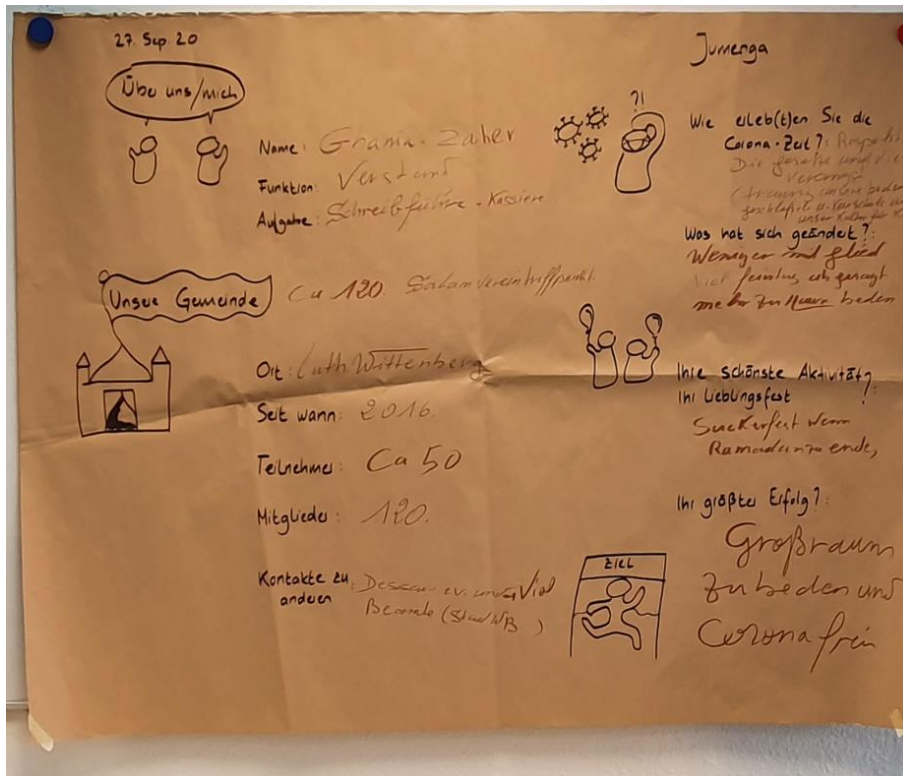 27. Sep. 20
Jumenga
Über uns/mich
Name: Grania. Zaher
Funktion: Verstand
Aufgabe: Schreibführe - Kassiere
Unsere Gemeinde
Ca 120. Salam vereintreffpunkt.
Ort: Luth. Wittenberg
Seit wann: 2016.
Teilnehmer: Ca 50
Mitglieder: 120.
Kontakte zu
anderen
: Dessau viel
Beamte (Stad WB)
?!
Wie erleb(t)en Sie die
Corona-Zeit?: Respekt
Die gesetze und die
unsere beden
Was hat sich geändert?:
Weniger mit glied
mehr zu beden
Ihre schönste Aktivität?
Ihr Lieblingsfest
Suckerfest wenn
Ramadan zu ende,
Ihr größter Erfolg?:
ZIEL
Großraum
zu beden und
Corona frei